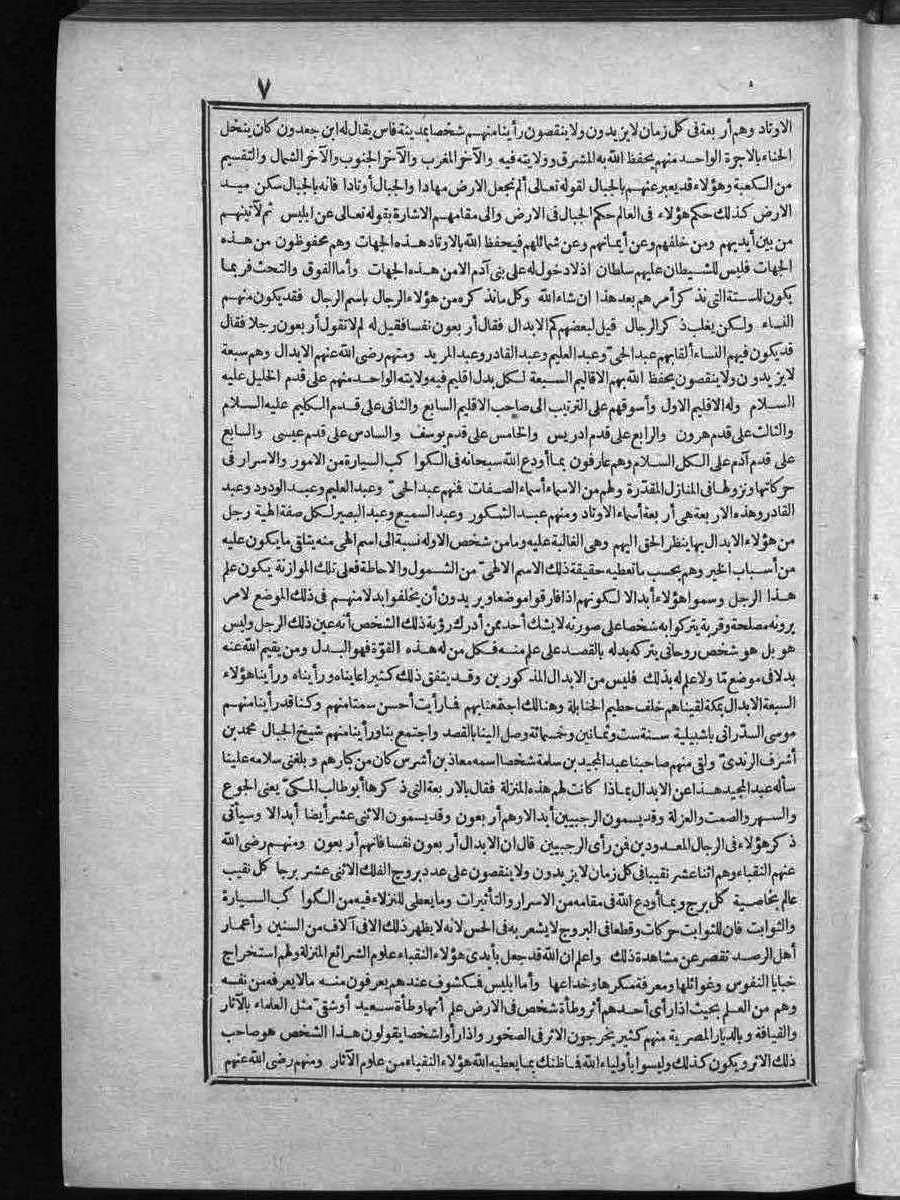 ٧
الاوتاد وهم أر بعة فى كل زمان لا يزيدون ولا ينقصون رأينا منهم شخصا بمدينة فاس يقال له ابن جعدون كان ينخل
الحناء بالاجرة الواحد منهم يحفظ الله به المشرق وولايته فيه والآخر المغرب والآخر الجنوب والآخر الشمال والتقسيم
من الكعبة وهؤلاء قد يعبر عنهم بالجبال لقوله تعالى ألم نجعل الارض مهادا والجبال أوتادا فانه بالجبال سكن ميد
الارض كذلك حكم هؤلاء فى العالم حكم الجبال فى الارض والى مقامهم الاشارة بقوله تعالى عن ابليس ثم لآتينهم
من بين أيديهم ومن خلفهم وعن أيمانهم وعن شمائلهم فيحفظ الله بالاوتاد هذه الجهات وهم محفوظون من هذه
الجهات فليس للشيطان عليهم سلطان اذ لا دخول له على بنى آدم الا من هذه الجهات وأما الفوق والتحت فربما
يكون للستة التى نذكر أمرهم بعد هذا ان شاء الله وكل ما نذكره من هؤلاء الرجال باسم الرجال فقد يكون منهم
النساء ولكن يغلب ذكر الرجال قيل لبعضهم كم الابدال فقال أر بعون نفسا فقيل له لم لا تقول أر بعون رجلا فقال
قد يكون فيهم النساء ألقابهم عبد الحىّ وعبد العليم وعبد القادر وعبد المريد ومنهم رضى الله عنهم الابدال وهم سبعة
لا يزيدون ولا ينقصون يحفظ الله بهم الاقاليم السبعة لكل بدل اقليم فيه ولايته الواحد منهم على قدم الخليل عليه
السلام وله الاقليم الاول وأسوقهم على الترتيب الى صاحب الاقليم السابع والثانى على قدم الكليم عليه السلام
والثالث على قدم هرون والرابع على قدم ادريس والخامس على قدم يوسف والسادس على قدم عيسى والسابع
على قدم آدم على الكل السلام وهم عارفون بما أودع الله سبحانه فى الكواكب السيارة من الامور والاسرار فى
حركاتها ونزولها فى المنازل المقدّرة ولهم من الاسماء أسماء الصفات فمنهم عبد الحىّ وعبد العليم وعبد الودود وعبد
القادر وهذه الاربعة هى أر بعة أسماء الاوتاد ومنهم عبد الشكور وعبد السميع وعبد البصير لكل صفة الهية رجل
من هؤلاء الابدال بها ينظر الحق اليهم وهى الغالبة عليه وما من شخص الا وله نسبة الى اسم الهى منه يتلقى ما يكون عليه
من أسباب الخير وهم بحسب ما تعطيه حقيقة ذلك الاسم الالهىّ من الشمول والاحاطة فعلى تلك الموازنة يكون علم
هذا الرجل وسموا هؤلاء أبدالا لكونهم اذا فارقوا موضعا ويريدون أن يخلفوا بدلا منهم فى ذلك الموضع لامر
يرونه مصلحة وقربة يتركوا به شخصا على صورته لا يشك أحد ممن أدرك رؤية ذلك الشخص أنه عين ذلك الرجل وليس
هو بل هو شخص روحانى يتركه بدله بالقصد على علم منه فكل من له هذه القوّة فهو البدل ومن يقيم الله عنه
بدلا فى موضع مّا ولا علم له بذلك فليس من الابدال المذكورين وقد يتفق ذلك كثيرا عايناه ورأيناه ورأينا هؤلاء
السبعة الابدال بمكة لقيناهم خلف حطيم الحنابلة وهنالك اجتمعنا بهم فما رأيت أحسن سمتا منهم وكنا قد رأينا منهم
موسى السدّرانى باشبيلية سنة ست وثمانين وخمسمائة وصل الينا بالقصد واجتمع بنا ورأينا منهم شيخ الجبال محمد بن
أشرف الرندىّ ولقى منهم صاحبنا عبد المجيد بن سلمة شخصا اسمه معاذ بن أشرس كان من كبارهم و بلغنى سلامه علينا
سأله عبد المجيد هذا عن الابدال بماذا كانت لهم هذه المنزلة فقال بالاربعة التى ذكرها أبو طالب المكىّ يعنى الجوع
والسهر والصمت والعزلة وقد يسمون الرجبيين أبدالا وهم أر بعون وقد يسمون الاثنى عشر أيضا أبدالا وسيأتى
ذكر هؤلاء فى الرجال المعدودين فمن رأى الرجبيين قال ان الابدال أر بعون نفسا فانهم أر بعون ومنهم رضى الله
عنهم النقباء وهم اثنا عشر نقيبا فى كل زمان لا يزيدون ولا ينقصون على عدد بروج الفلك الاثنى عشر برجا كل نقيب
عالم بخاصية كل برج و بما أودع الله فى مقامه من الاسرار والتأثيرات وما يعطى للنزلاء فيه من الكواكب السيارة
والثوابت فان للثوابت حركات وقطعا فى البروج لا يشعر به فى الحس لانه لا يظهر ذلك الا فى آلاف من السنين وأعمار
أهل الرصد تقصر عن مشاهدة ذلك واعلم ان الله قد جعل بأيدى هؤلاء النقباء علوم الشرائع المنزلة ولهم استخراج
خبايا النفوس وغوائلها ومعرفة مكرها وخداعها وأما ابليس فمكشوف عندهم يعرفون منه ما لا يعرفه من نفسه
وهم من العلم بحيث اذا رأى أحدهم أثر وطأة شخص فى الارض علم أنها وطأة سعيد أو شقىّ مثل العلماء بالآثار
والقيافة و بالديار المصرية منهم كثير يخرجون الاثر فى الصخور واذا رأوا شخصا يقولون هذا الشخص هو صاحب
ذلك الاثر ويكون كذلك وليسوا بأولياء الله فما ظنك بما يعطيه الله هؤلاء النقباء من علوم الآثار ومنهم رضى الله عنهم